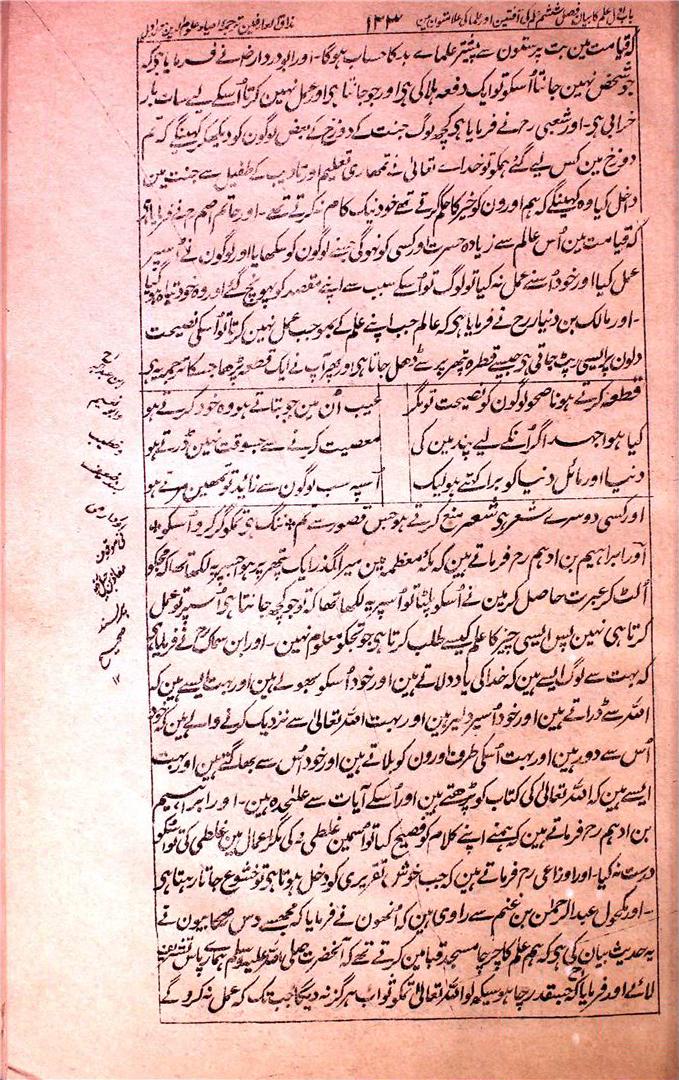 باب اول علم کا بیان فصل ششم علم کی آفتین اور علما کی علامتون مین
۱۳۳
مذاق العارفین ترجمہ احیاء علوم الدین جلد اول
کہ قیامت مین بت پرستون سے پیشتر علماے بد کا حساب ہوگا۔ اور ابو دردا رض نے فرمایا ہی کہ
جو شخص نہین جانتا اُسکو تو ایک دفعہ ہلاکی ہی اور جو جانتا ہی اور عمل نہین کرتا اُسکے لیے سات بار
خرابی ہی۔ اور شعبی رح نے فرمایا ہی کہ کچھ لوگ جنت کے دوزخ کے بعض لوگون کو دیکھ کر کہینگے کہ تم
دوزخ مین کس لیے گئے ہمکو تو خداے تعالی نے تمھاری تعلیم اور تادیب کے طفیل سے جنت مین
داخل کیا وہ کہینگے کہ ہم اورون کو خیر کا حکم کرتے تھے خود نیک کام نکرتے تھے۔ اور حاتم اصم رح نے فرمایا ہی
کہ قیامت مین اُس عالم سے زیادہ حسرت اور کسی کو نہوگی جسنے لوگون کو سکھایا اور لوگون نے اُسپر
عمل کیا اور خود اُسنے عمل نہ کیا تو لوگ تو اُسکے سبب سے اپنے مقصد کو پہونچ گئے اور وہ خود تباہ ہو گیا
۔ اور مالک بن دینار رح نے فرمایا ہی کہ عالم جب اپنے علم کے بموجب عمل نہین کرتا تو اُسکی نصیحت
دلون پر ایسی ہٹ جاتی ہی جیسے قطرہ پتھر پر سے ڈھل جاتا ہی اور پھر آپ نے ایک قصہ پڑھا جسکا ترجمہ یہ ہی
قطعہ کرتے ہو ناصحو لوگون کو نصیحت تو مگر
عیب اُن مین جو بتاتے ہو وہ خود کرتے ہو
کیا ہوا جہد اگر اُنکے لیے پند مین کی
معصیت کرنے سے جسوقت نہین ڈرتے ہو
دنیا اور مائل دنیا کو برا کہتے ہو لیک
اُسپہ سب لوگون سے زائد تو تمھین مرتے ہو
اور کسی دوسرے شعر ہی شعر منع کرتے ہو جس قصور سے تم * ننگ ہی تمکو گر کرو اُسکو *
اور ابراہیم بن ادہم رح فرماتے ہین کہ مکہ معظمہ مین میرا گذر ایک پتھر پر ہوا جسپر یہ لکھا تھا کہ مجھکو
اُلٹ کر عبرت حاصل کر مین نے اُسکو پلٹا تو اُسپر یہ لکھا تھا کہ تو جو کچھ جانتا ہی اُسپر تو عمل
کرتا ہی نہین پس ایسی چیز کا علم کیسے طلب کرتا ہی جو تجھکو معلوم نہین۔ اور ابن سماک رح نے فرمایا ہی
کہ بہت سے لوگ ایسے ہین کہ خدا کی یاد دلاتے ہین اور خود اُسکو بھولے ہین اور بہت ایسے ہین کہ
اللہ سے ڈراتے ہین اور خود اُسپر دلیر ہین اور بہت اللہ تعالی سے نزدیک کرنے والے ہین کہ خود
اُس سے دور ہین اور بہت اُسکی طرف اورون کو بلاتے ہین اور خود اُس سے بھاگتے ہین اور بہت
ایسے ہین کہ اللہ تعالی کی کتاب کو پڑھتے ہین اور اُسکے آیات سے علیحدہ ہین۔ اور ابراہیم
بن ادہم رح فرماتے ہین کہ ہمنے اپنے کلام کو فصیح کیا تو اسمین غلطی نہ کی مگر اعمال مین غلطی کی تو اُنکو
درست نہ کیا۔ اور اوزاعی رح فرماتے ہین کہ جب خوش تقریری کو دخل ہوتا ہی تو خشوع جاتا رہتا ہی
۔ اور مکحول عبدالرحمن بن غنم سے راوی ہین کہ اُنھون نے فرمایا کہ مجھسے دس صحابیون نے
یہ حدیث بیان کی ہی کہ ہم علم کا چرچا مسجد قبا مین کرتے تھے کہ آنحضرت صلی اللہ علیہ وسلم ہمارے پاس تشریف
لائے اور فرمایا کہ جسقدر چاہو سیکھ لو اللہ تعالی تمکو ثواب ہرگز نہ دیگا جب تک کہ عمل نہ کروگے